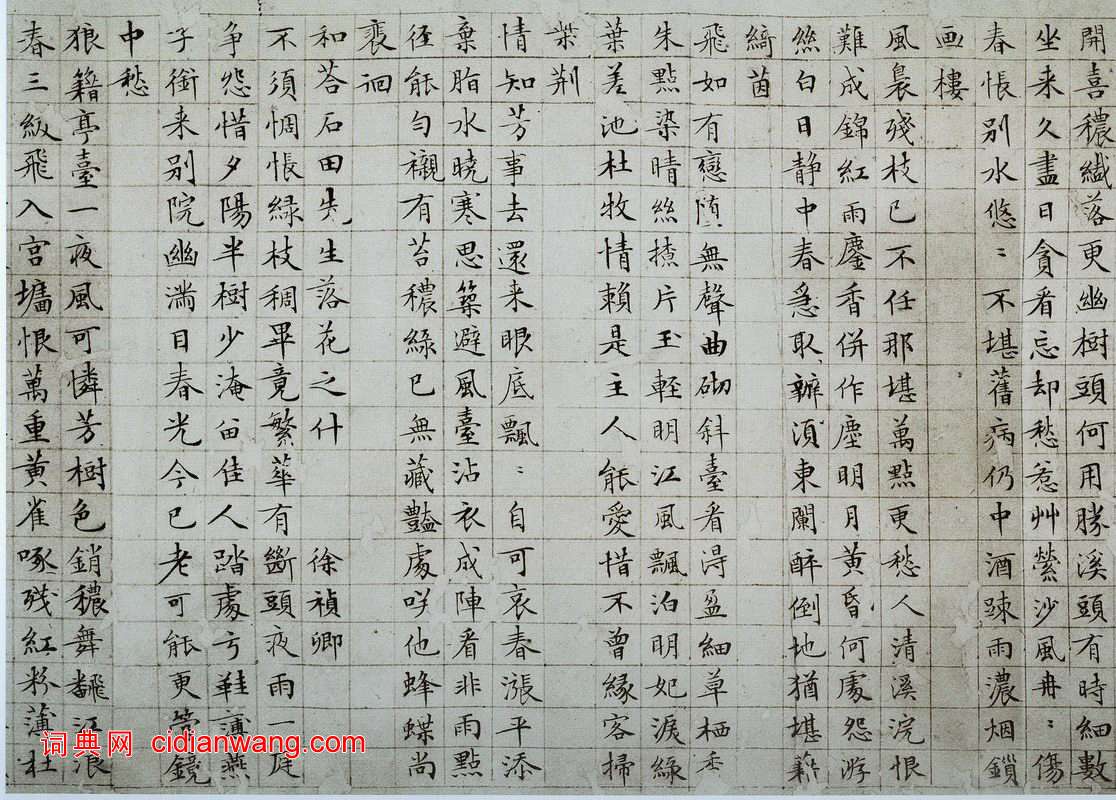 開喜穠纎落更幽樹頭何用勝溪頭有時細數
坐来久盡日貪看忘却愁惹艸縈沙風冉〻傷
春悵别水悠〻不堪舊病仍中酒踈雨濃烟鎖
画樓
風裊殘枝已不任那堪萬點更愁人清溪浣恨
難成錦紅雨鏖香併作塵明月黄昏何處怨游
絲白日静中春急取辦湏東闌醉倒地猶堪藉
綺茵
飛如有戀墮無聲曲砌斜臺看淂盈細草栖香
朱點染晴絲撩片玉輕明江風飄泊明妃淚緑
葉差池杜牧情賴是主人能愛惜不曾縁客掃
柴荆
情知芳事去還来眼底飄〻自可哀春漲平添
棄脂水曉寒思築避風臺沾衣成陣看非雨點
徑能勻襯有苔穠緑已無藏豔處咲他蜂蝶尚
裵徊
和荅石田先生落花之什 徐禎卿
不須惆悵緑枝稠畢竟繁華有斷頭夜雨一庭
争怨惜夕陽半樹少淹留佳人踏處弓鞋薄燕
子銜来别院幽滿目春光今已老可能更管鏡
中愁
狼籍亭臺一夜風可憐芳樹色銷穠舞飜江浪
春三級飛入宫墻恨萬重黄雀啄残紅粉薄杜
词典网 cidianwang.com